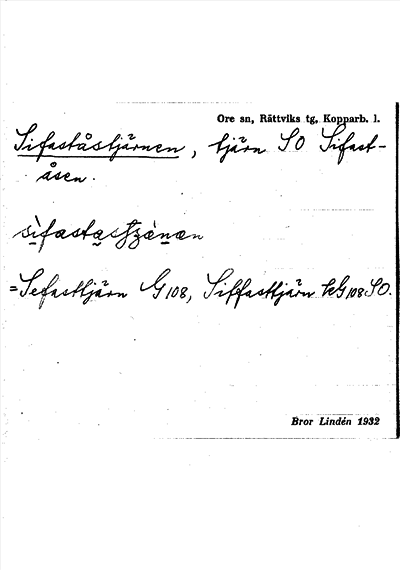 Ore sn, Rättviks tg, Kopparb. l.
Sifaståstjärnen, tjärn SO Sifast-
åsen.
=Sefasttjärn G108, Siffasttjärn kG108 SO.
Bror Lindén 1932